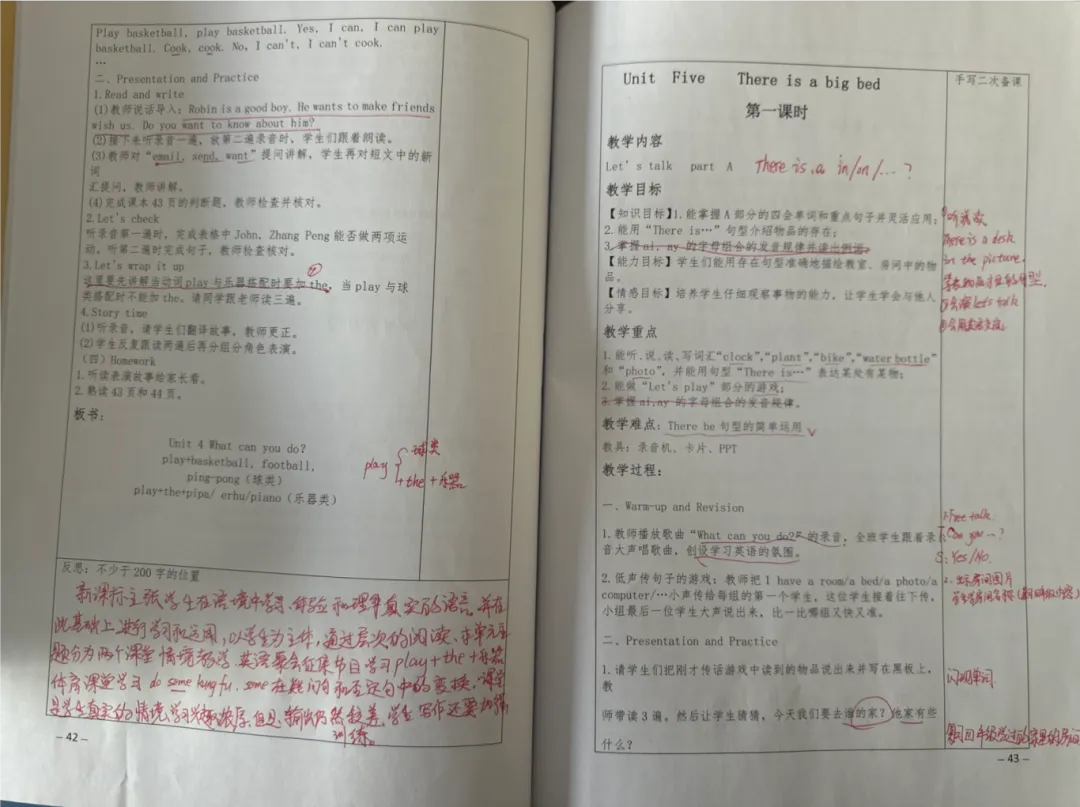 Play basketball, play basketball. Yes, I can, I can play
basketball. Cook, cook. No, I can't, I can't cook.
…
二、Presentation and Practice
1.Read and write
(1)教师说话导入：Robin is a good boy. He wants to make friends
wish us. Do you want to know about him?
(2)接下来听录音一遍，放第二遍录音时，学生们跟着朗读。
(3)教师对“email, send, want”提问讲解，学生再对短文中的新
词
汇提问，教师讲解。
(4)完成课本43页的判断题，教师检查并核对。
2.Let's check
听录音第一遍时，完成表格中John、Zhang Peng能否做两项运
动。听第二遍时完成句子，教师检查核对。
3.Let's wrap it up
这里要先讲解当动词play与乐器搭配时要加the，当play与球
类搭配时不能加the。请同学跟老师读三遍。
4.Story time
(1)听录音，请学生们翻译故事，教师更正。
(2)学生反复跟读两遍后再分组分角色表演。
(四)Homework
1.听读表演故事给家长看。
2.熟读43页和44页。
板书：
Unit 4 What can you do?
play+basketball, football,
ping-pong（球类）
play+the+pipa/ erhu/piano（乐器类）
play 球类
+the+乐器
反思：不少于200字的位置
新课标主张学生在语境中 体验和理解真实的语言，并在
此基础上进行学习和运用，以学生为主体，通过层次的阅读、本单元主
题分为两个课堂情境教学，英语 节目学习play+the+乐器
体育课堂学习do some kung fu. some在疑问句和否定句中的变换，课堂
是学生真实的情境，学习兴趣浓厚，但是输出 较差，学生写作还要加强
训练。
-42-
Unit Five There is a big bed
手写二次备课
第一课时
教学内容
Let's talk part A There is a in/on/…?
教学目标
【知识目标】1.能掌握A部分的四会单词和重点句子并灵活应用；
2.能用“There is…”句型介绍物品的存在；
3.掌握ai, ay的字母组合的发音规律并读出例词。
【能力目标】学生们能用存在句型准确地描绘教室、房间中的物
品。
【情感目标】培养学生仔细观察事物的能力，让学生学会与他人
分享。
There is a desk
in the picture.
Let's talk
教学重点
1.能听、说、读、写词汇“clock”,“plant”,“bike”,“water bottle”
和“photo”，并能用句型“There is…”表达某处有某物；
2.能做“Let's play”部分的游戏；
3.掌握ai,ay的字母组合的发音规律。
教学难点：There be句型的简单运用
教具：录音机、卡片、PPT
教学过程：
一、Warm-up and Revision
1.Free talk.
1.教师播放歌曲“What can you do?”的录音，全班学生跟着录
T: Can you …?
音大声唱歌曲，创设学习英语的氛围。
S: Yes/No.
2.低声传句子的游戏：教师把I have a room/a bed/a photo/a
2. 出示房间图片
computer/…小声传给每组的第一个学生，这位学生接着往下传，
小组最后一位学生大声说出来，比一比哪组又快又准。
二、Presentation and Practice
1.请学生们把刚才传话游戏中读到的物品说出来并写在黑板上，
教
闪现单词.
师带读3遍。然后让学生猜猜，今天我们要去谁的家？他家有些
什么？
-43-